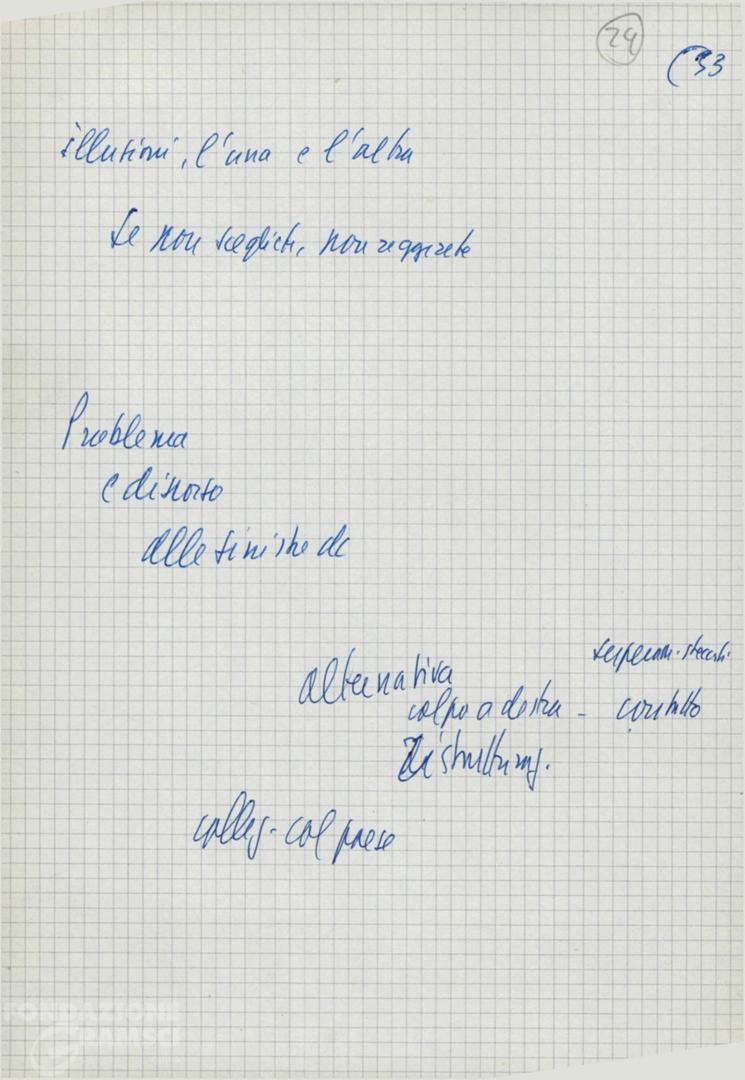 29
33
illusioni, l'una e l'altra
se non scegliete, non reggerete
Problema
e discorso
alle sinistre dc
alternativa
colpo a destra - contratto
Ristrutturaz.
colleg. col paese
FONDAZIONE
GRAMSCI